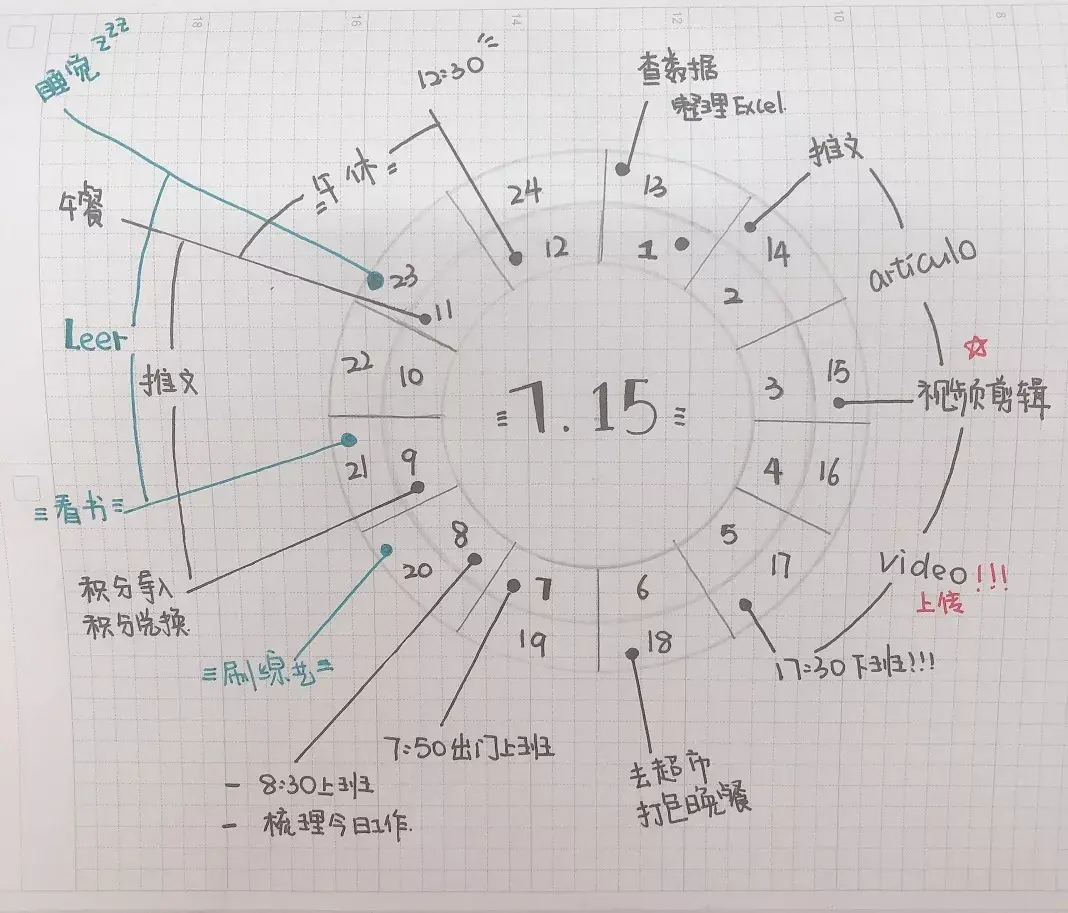 18
16
14
12
10
8
睡觉 zzz
12:30
查数据
整理Excel.
推文
午休
午餐
24
13
12
1
14
2
articulo
23
11
Leer
推文
22
10
7.15
3
15
视频剪辑
21
9
4
16
看书
8
5
video!!!
上传
20
7
6
17
积分导入
积分兑换
19
18
17:30下班!!!
刷综艺
7:50出门上班
- 8:30上班
- 梳理今日工作.
去超市
打包晚餐